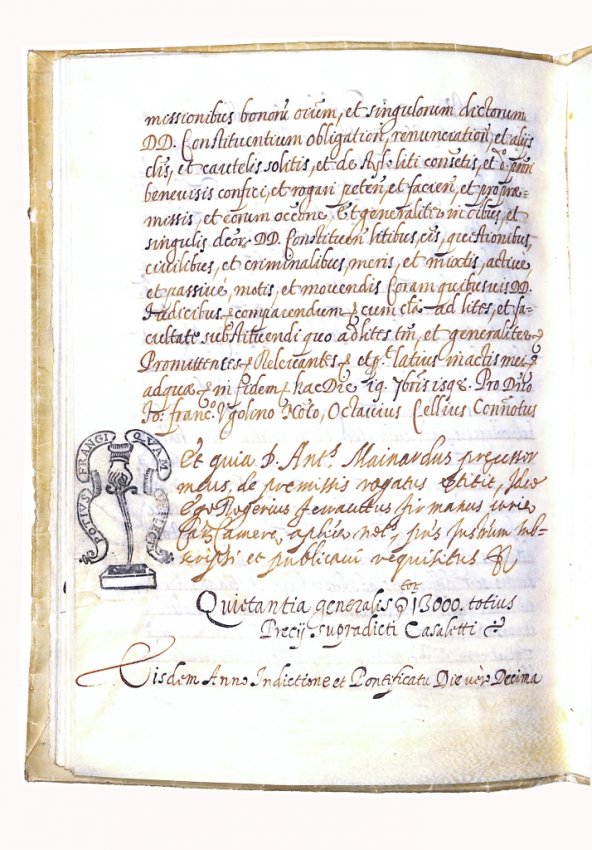 messionibus bonorũ oium, et singulorum dictorum
DD. Constituentium obligation, renunciation, et alijs
clis, et cautelis solitis, et de stylo liti consetis, et
benevisis confici, et rogari peten, et facien, et propræ-
missis, et eorum occõne Et generaliter in oibus, et
singulis dcor, DD. Constituen litibus, cis, quæstionibus
civilibus, et criminalibus, meris, et mixtis, active
et passive, motis, et movendis Coram quibusvis DD.
Iudicibus comparendum cum cla ad lites, et fa-
cultate substituendi quo ad lites tm, et generaliter
Promittentes Relevantes et latius in actis meis
ad quæ in fidem hac Die 19 7bris 1598. Pro Dño
Io: Franc.o Ugolino Noto, Octavius Cellius Connotus
POTIUS FRANGI QVAM FLECTI
Et quia D. Ants. Mainardus precessor
meus, de premissis rogatus extitit, Ideo
Ego Rogerius firmanus curie
Cause Camere, aplice nots, pns Instrum sub-
scripsi et publicavi requisitus
Quietantia generalis 13000. totius
Precij supradicti Casaletti
Eisdem Anno Indictione et Pontificatu Die vero Decima